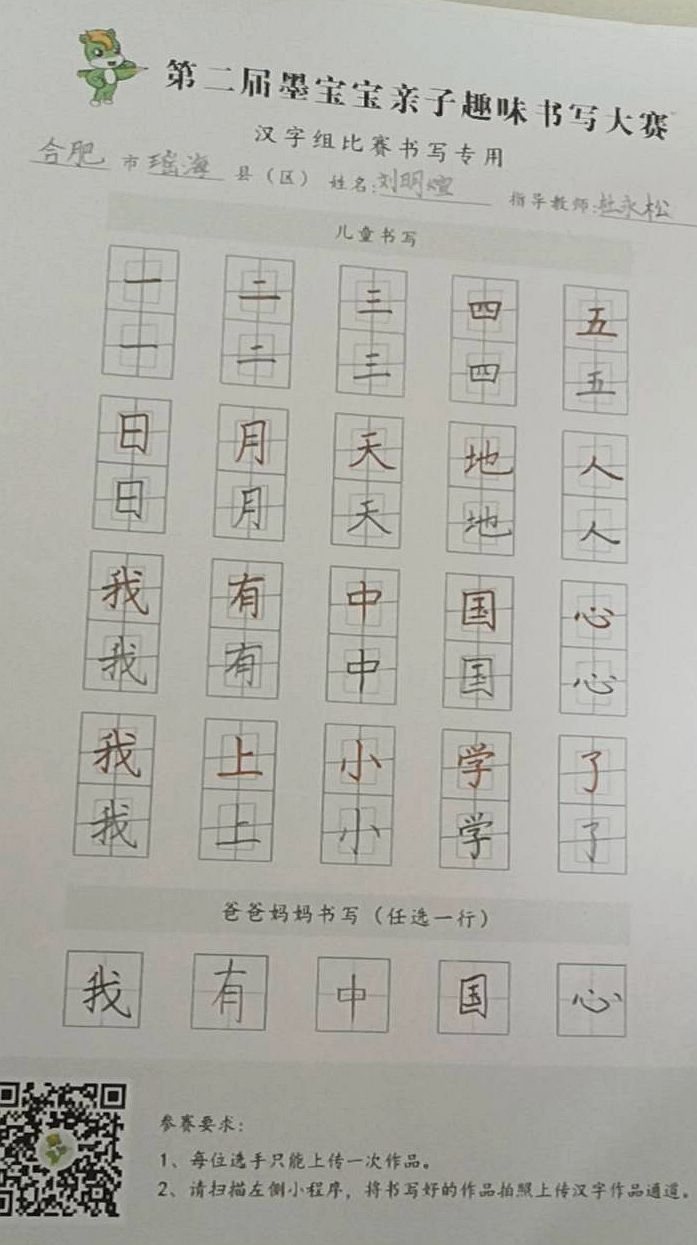 第二届墨宝宝亲子趣味书写大赛
汉字组比赛书写专用
合肥市瑶海县（区） 姓名:刘明煊 指导教师:杜永松
儿童书写
一 二 三 四 五
一 二 三 四 五
日 月 天 地 人
日 月 天 地 人
我 有 中 国 心
我 有 中 国 心
我 上 小 学 了
我 上 小 学 了
爸爸妈妈书写（任选一行）
我 有 中 国 心
参赛要求:
1、每位选手只能上传一次作品。
2、请扫描左侧小程序，将书写好的作品拍照上传汉字作品通道。